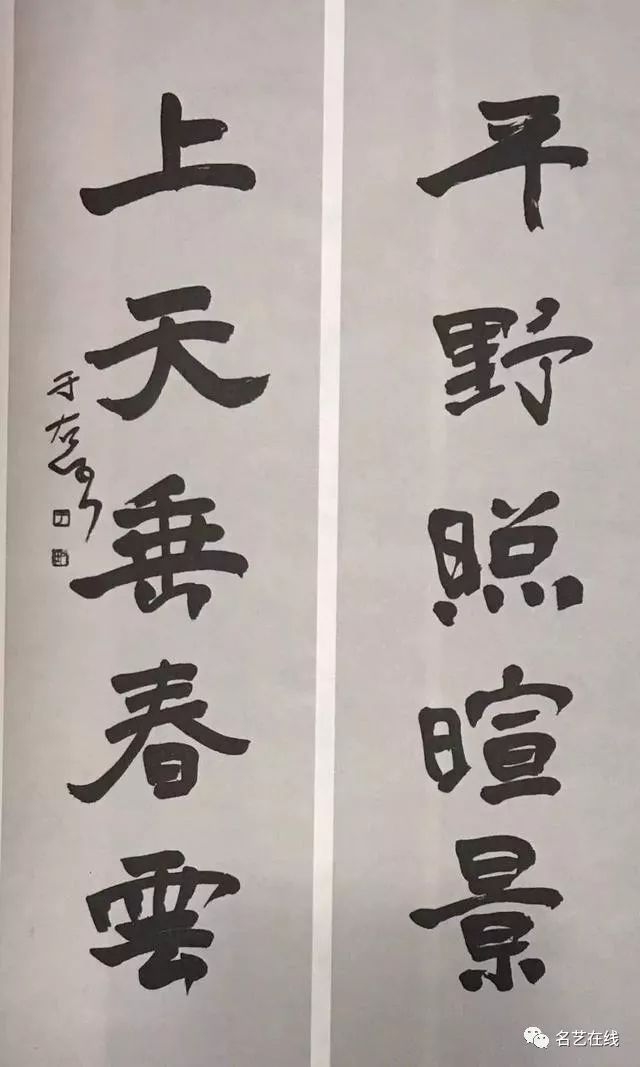 平野照暄景
上天垂春雲
于右任
名艺在线